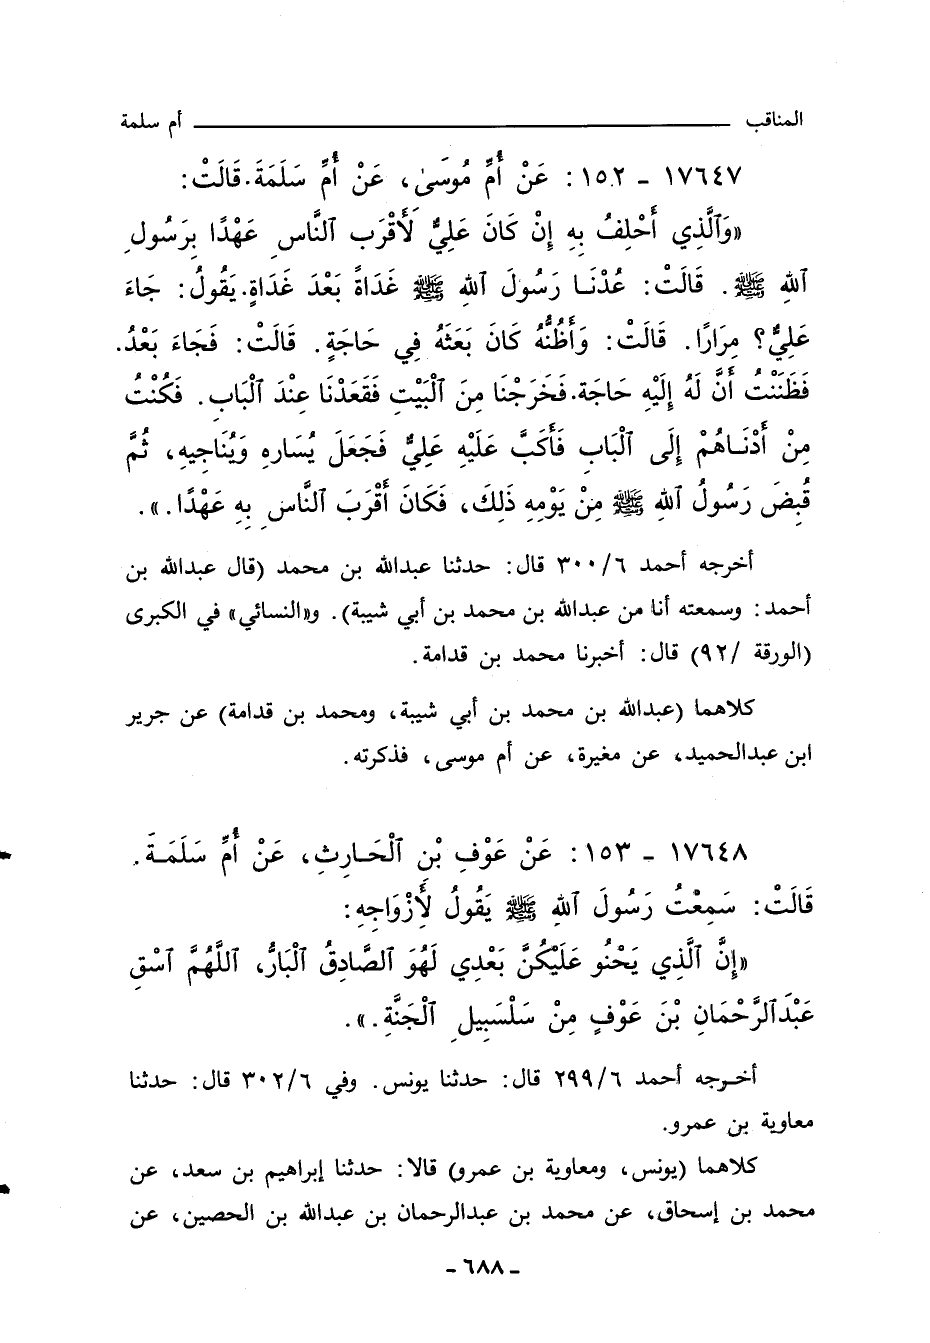 المناقب ـــــــــــــــــــــــــــــــــــــــ أم سلمة
١٧٦٤٧ - ١٥٢: عَنْ أُمِّ مُوسَىٰ، عَنْ أُمِّ سَلَمَةَ. قَالَتْ:
«وَٱلَّذِي أَحْلِفُ بِهِ إِنْ كَانَ عَلِيٌّ لَأَقْرَبَ ٱلنَّاسِ عَهْدًا بِرَسُولِ
ٱللهِ ﷺ. قَالَتْ: عُدْنَا رَسُولَ ٱللهِ ﷺ غَدَاةً بَعْدَ غَدَاةٍ. يَقُولُ: جَاءَ
عَلِيٌّ؟ مِرَارًا. قَالَتْ: وَأَظُنُّهُ كَانَ بَعَثَهُ فِي حَاجَةٍ. قَالَتْ: فَجَاءَ بَعْدُ.
فَظَنَنْتُ أَنَّ لَهُ إِلَيْهِ حَاجَة. فَخَرَجْنَا مِنَ ٱلْبَيْتِ فَقَعَدْنَا عِنْدَ ٱلْبَابِ. فَكُنْتُ
مِنْ أَدْنَاهُمْ إِلَى ٱلْبَابِ فَأَكَبَّ عَلَيْهِ عَلِيٌّ فَجَعَلَ يُسَارهِ وَيُنَاجِيهِ، ثُمَّ
قُبِضَ رَسُولُ ٱللهِ ﷺ مِنْ يَوْمِهِ ذَلِكَ، فَكَانَ أَقْرَبَ ٱلنَّاسِ بِهِ عَهْدًا.».
أخرجه أحمد ٣٠٠/٦ قال: حدثنا عبدالله بن محمد (قال عبدالله بن
أحمد: وسمعته أنا من عبدالله بن محمد بن أبي شيبة). و«النسائي» في الكبرى
(الورقة /٩٢) قال: أخبرنا محمد بن قدامة.
كلاهما (عبدالله بن محمد بن أبي شيبة، ومحمد بن قدامة) عن جرير
ابن عبدالحميد، عن مغيرة، عن أم موسى، فذكرته.
١٧٦٤٨ - ١٥٣: عَنْ عَوْفِ بْنِ ٱلْحَارِثِ، عَنْ أُمِّ سَلَمَةَ.
قَالَتْ: سَمِعْتُ رَسُولَ ٱللهِ ﷺ يَقُولُ لِأَزْوَاجِهِ:
«إِنَّ ٱلَّذِي يَحْنُو عَلَيْكُنَّ بَعْدِي لَهُوَ ٱلصَّادِقُ ٱلْبَارُّ، ٱللَّهُمَّ ٱسْقِ
عَبْدَٱلرَّحْمَانِ بْنَ عَوْفٍ مِنْ سَلْسَبِيلِ ٱلْجَنَّةِ.».
أخرجه أحمد ٢٩٩/٦ قال: حدثنا يونس. وفي ٣٠٢/٦ قال: حدثنا
معاوية بن عمرو.
كلاهما (يونس، ومعاوية بن عمرو) قالا: حدثنا إبراهيم بن سعد، عن
محمد بن إسحاق، عن محمد بن عبدالرحمان بن عبدالله بن الحصين، عن
- ٦٨٨ -